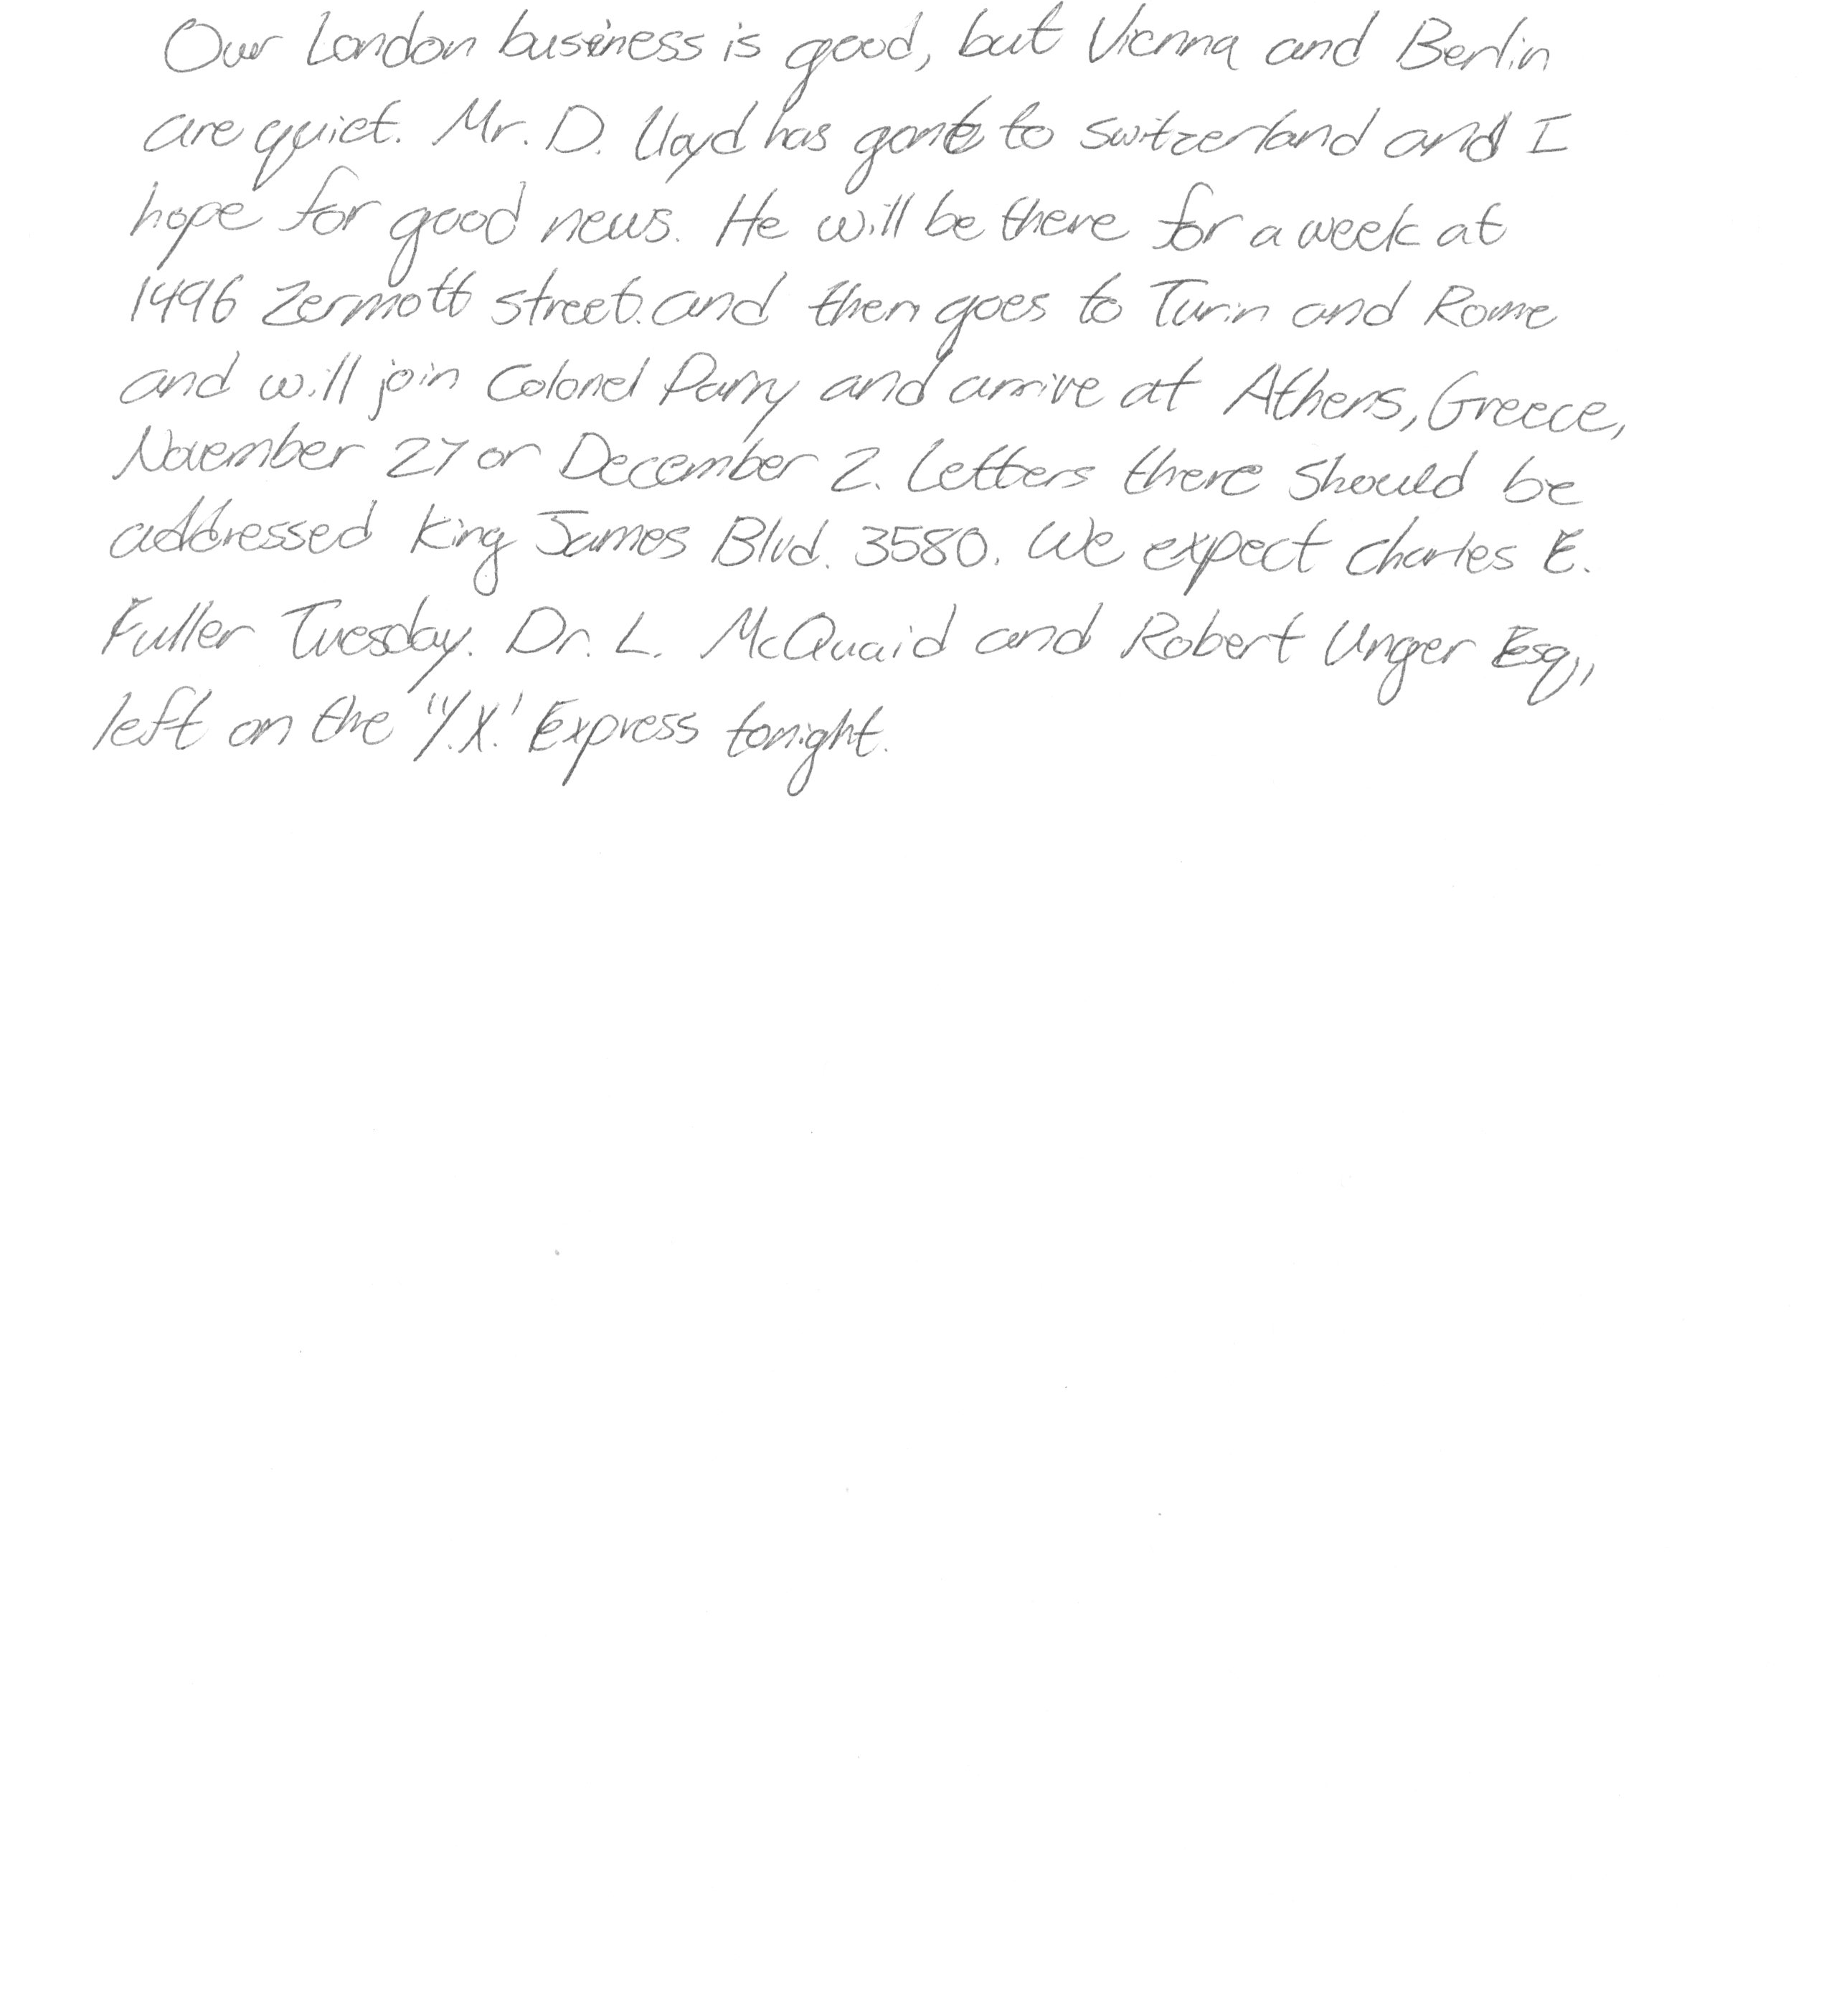 Our London business is good, but Vienna and Berlin
are quiet. Mr. D. Lloyd has gone to Switzerland and I
hope for good news. He will be there for a week at
1496 Zermott street. and then goes to Turin and Rome
and will join Colonel Parry and arrive at Athens, Greece,
November 27 or December 2. Letters there should be
addressed King James Blvd. 3580. We expect Charles E.
Fuller Tuesday. Dr. L. McQuaid and Robert Unger Esq.,
left on the "Y.X.' Express tonight.